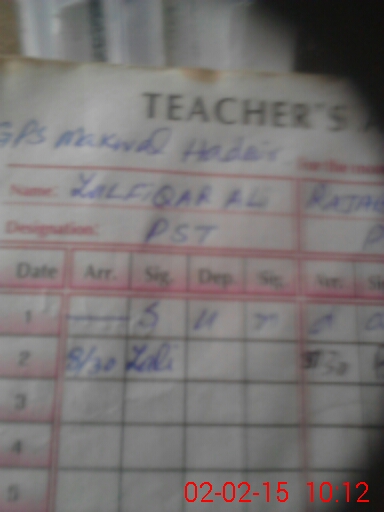 TEACHER'S
GPS Makwal Hadair for the
Name: ZULFIQAR ALI
Designation: PST P
Date Arr. Sig. Dep. Sig. Arr.
1 S U N d a
2 8/30 Zuli 8/30
3
4
5
02-02-15 10:12